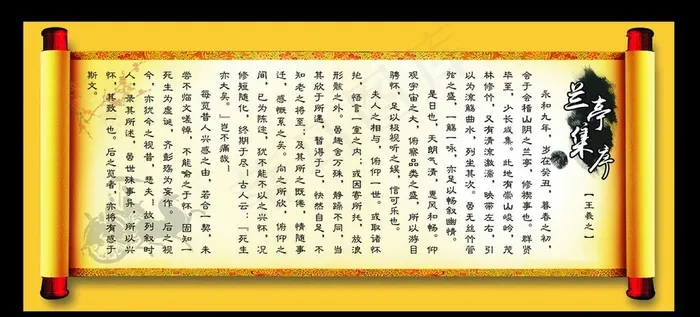 兰亭集序
【王羲之】
永和九年，岁在癸丑，暮春之初，
会于会稽山阴之兰亭，修禊事也。群贤
毕至，少长咸集。此地有崇山峻岭，茂
林修竹，又有清流激湍，映带左右，引
以为流觞曲水，列坐其次。虽无丝竹管
弦之盛，一觞一咏，亦足以畅叙幽情。
是日也，天朗气清，惠风和畅。仰
观宇宙之大，俯察品类之盛，所以游目
骋怀，足以极视听之娱，信可乐也。
夫人之相与，俯仰一世。或取诸怀
抱，悟言一室之内；或因寄所托，放浪
形骸之外。虽趣舍万殊，静躁不同，当
其欣于所遇，暂得于己，快然自足，不
知老之将至；及其所之既倦，情随事
迁，感慨系之矣。向之所欣，俯仰之
间，已为陈迹，犹不能不以之兴怀，况
修短随化，终期于尽！古人云：『死生
亦大矣。』岂不痛哉！
每览昔人兴感之由，若合一契，未
尝不临文嗟悼，不能喻之于怀。固知一
死生为虚诞，齐彭殇为妄作。后之视
今，亦犹今之视昔，悲夫！故列叙时
人，录其所述，虽世殊事异，所以兴
怀，其致一也。后之览者，亦将有感于
斯文。